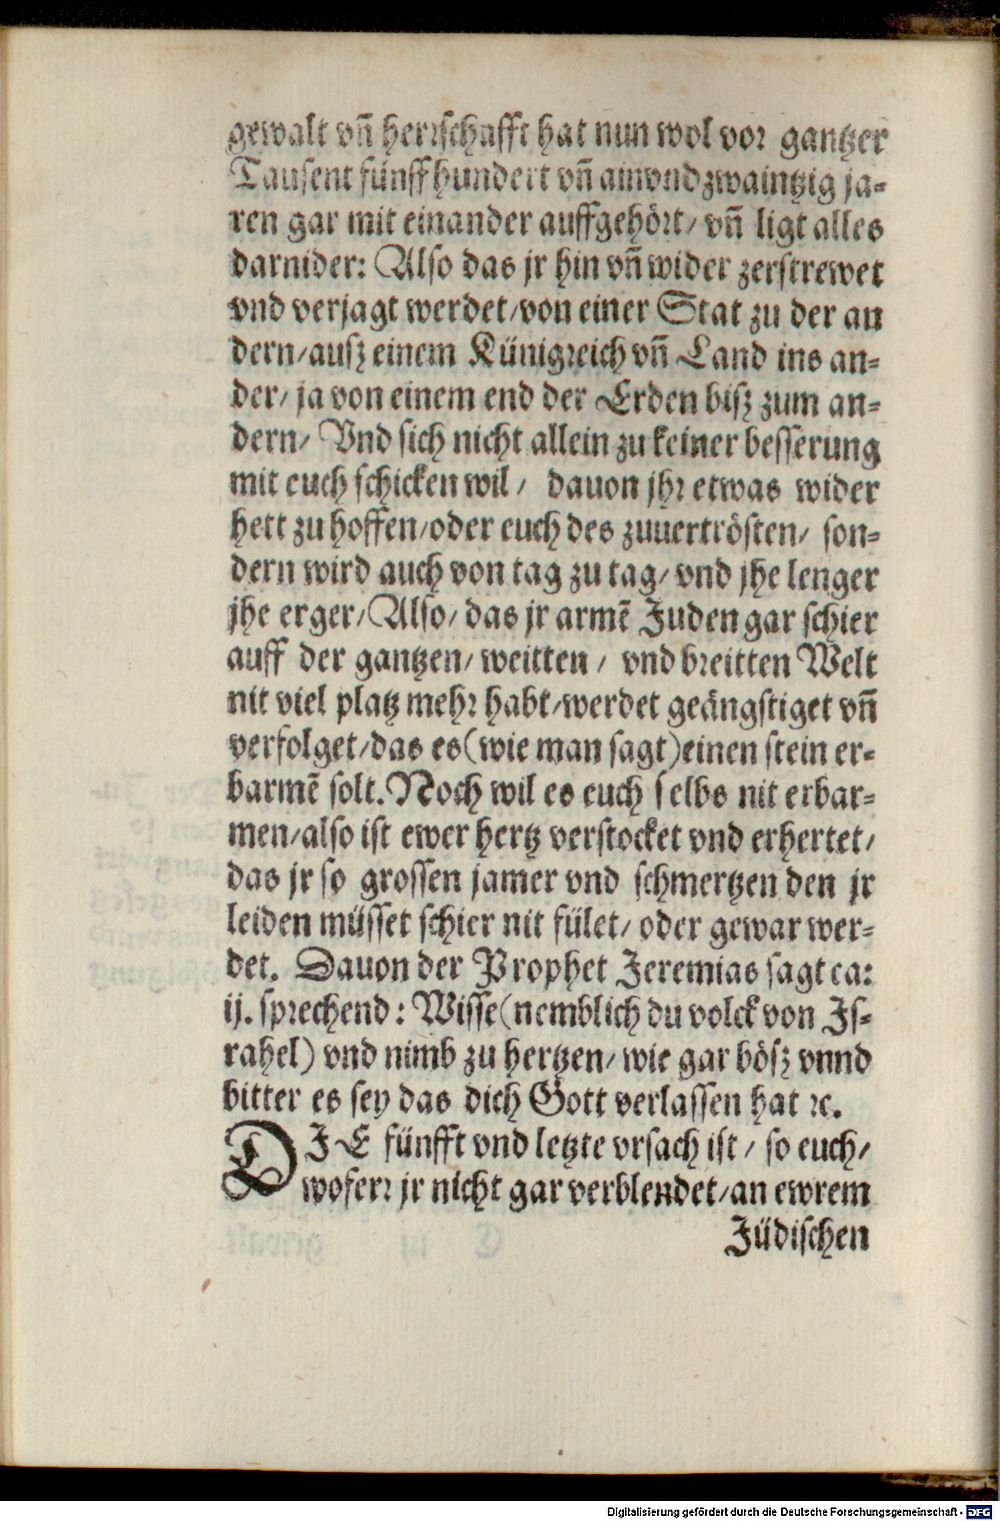 gewalt vñ herrschafft hat nun wol vor gantzer
Tausent fünffhundert vñ ainvndzwaintzig ja-
ren gar mit einander auffgehört/ vñ ligt alles
darnider: Also das jr hin vñ wider zerstrewet
vnd verjagt werdet/von einer Stat zu der an
dern/ausz einem Künigreich vñ Land ins an-
der/ ja von einem end der Erden bisz zum an-
dern/ Vnd sich nicht allein zu keiner besserung
mit euch schicken wil/ dauon jhr etwas wider
hett zu hoffen/oder euch des zuuertrösten/ son-
dern wird auch von tag zu tag/ vnd jhe lenger
jhe erger/Also/ das jr armẽ Juden gar schier
auff der gantzen/ weitten/ vnd breitten Welt
nit viel platz mehr habt/werdet geängstiget vñ
verfolget/das es(wie man sagt)einen stein er-
barmẽ solt.Noch wil es euch selbs nit erbar-
men/also ist ewer hertz verstocket vnd erhertet/
das jr so grossen jamer vnd schmertzen den jr
leiden müsset schier nit fület/ oder gewar wer-
det. Dauon der Prophet Jeremias sagt ca:
ij. sprechend: Wisse(nemblich du volck von Js-
rahel) vnd nimb zu hertzen/ wie gar bösz vnnd
bitter es sey das dich Gott verlassen hat ꝛc.
DJE fünfft vnd letzte vrsach ist/ so euch/
wofern jr nicht gar verblendet/an ewrem
Jüdischen
Digitalisierung gefördert durch die Deutsche Forschungsgemeinschaft - DFG